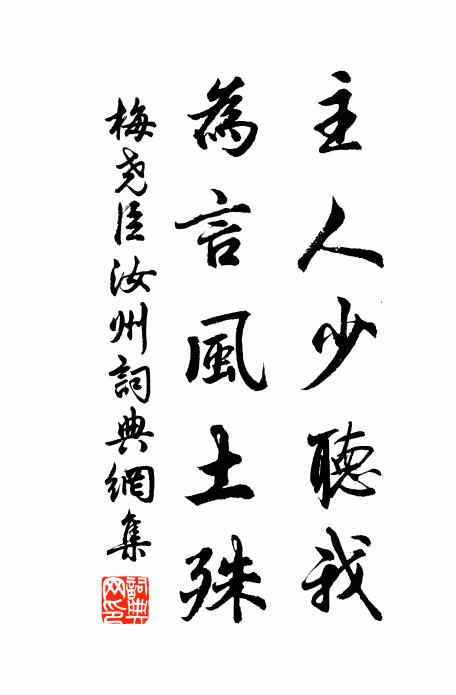 主人少聽我
為言風土殊
梅尧臣汝州詞典網集
詞典网印